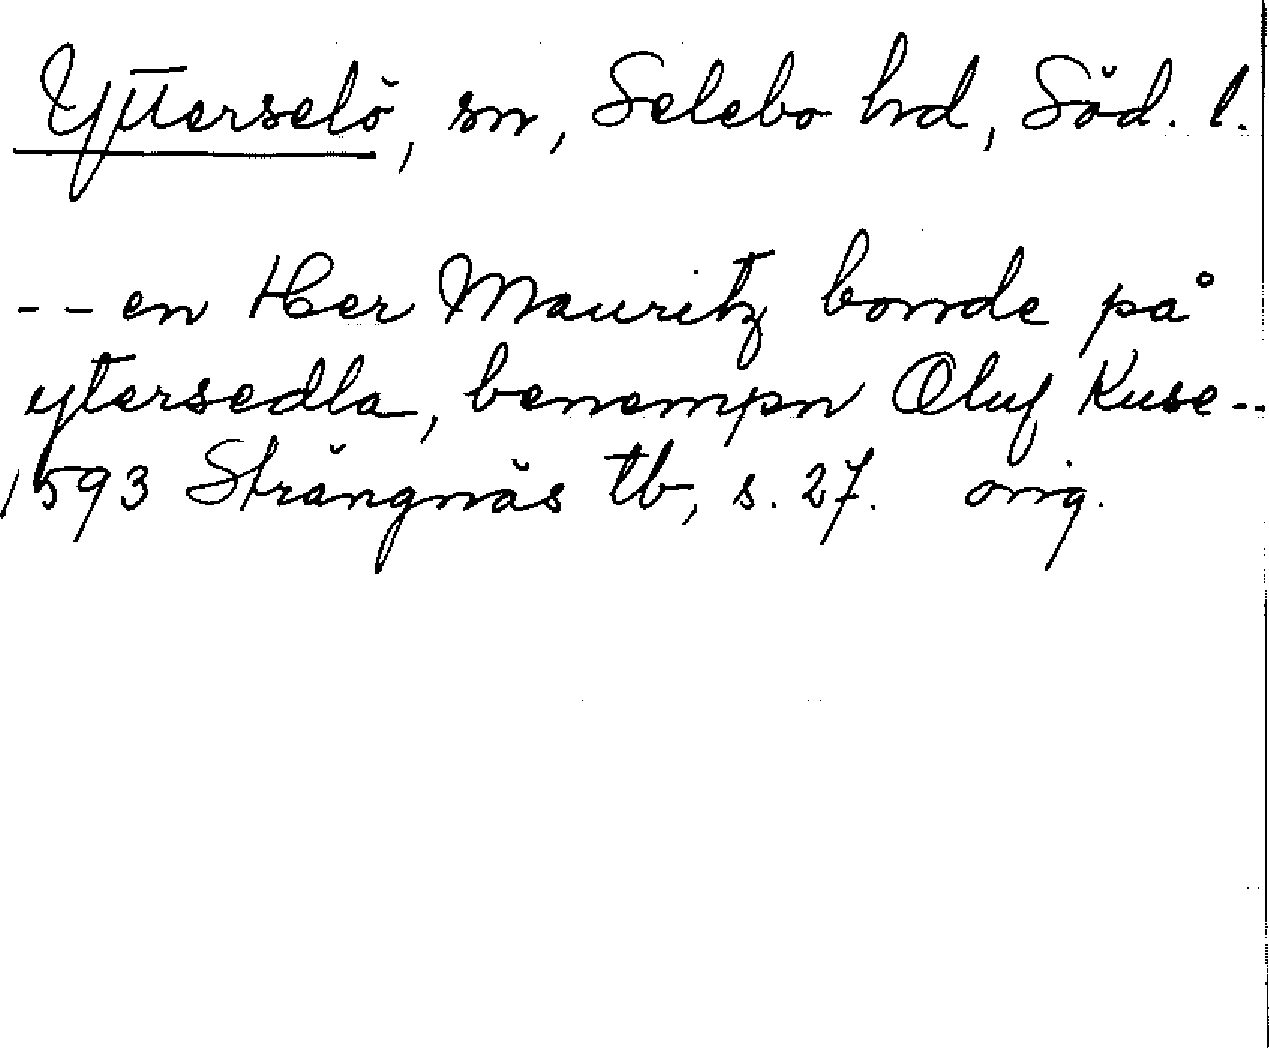 Ytterselö, sn, Selebo hd, Söd. l.
-- en Her Mauritz bonde på
ytersedla, benempn Oluf Kuse --
1593 Strängnäs tb, s. 27. orig.